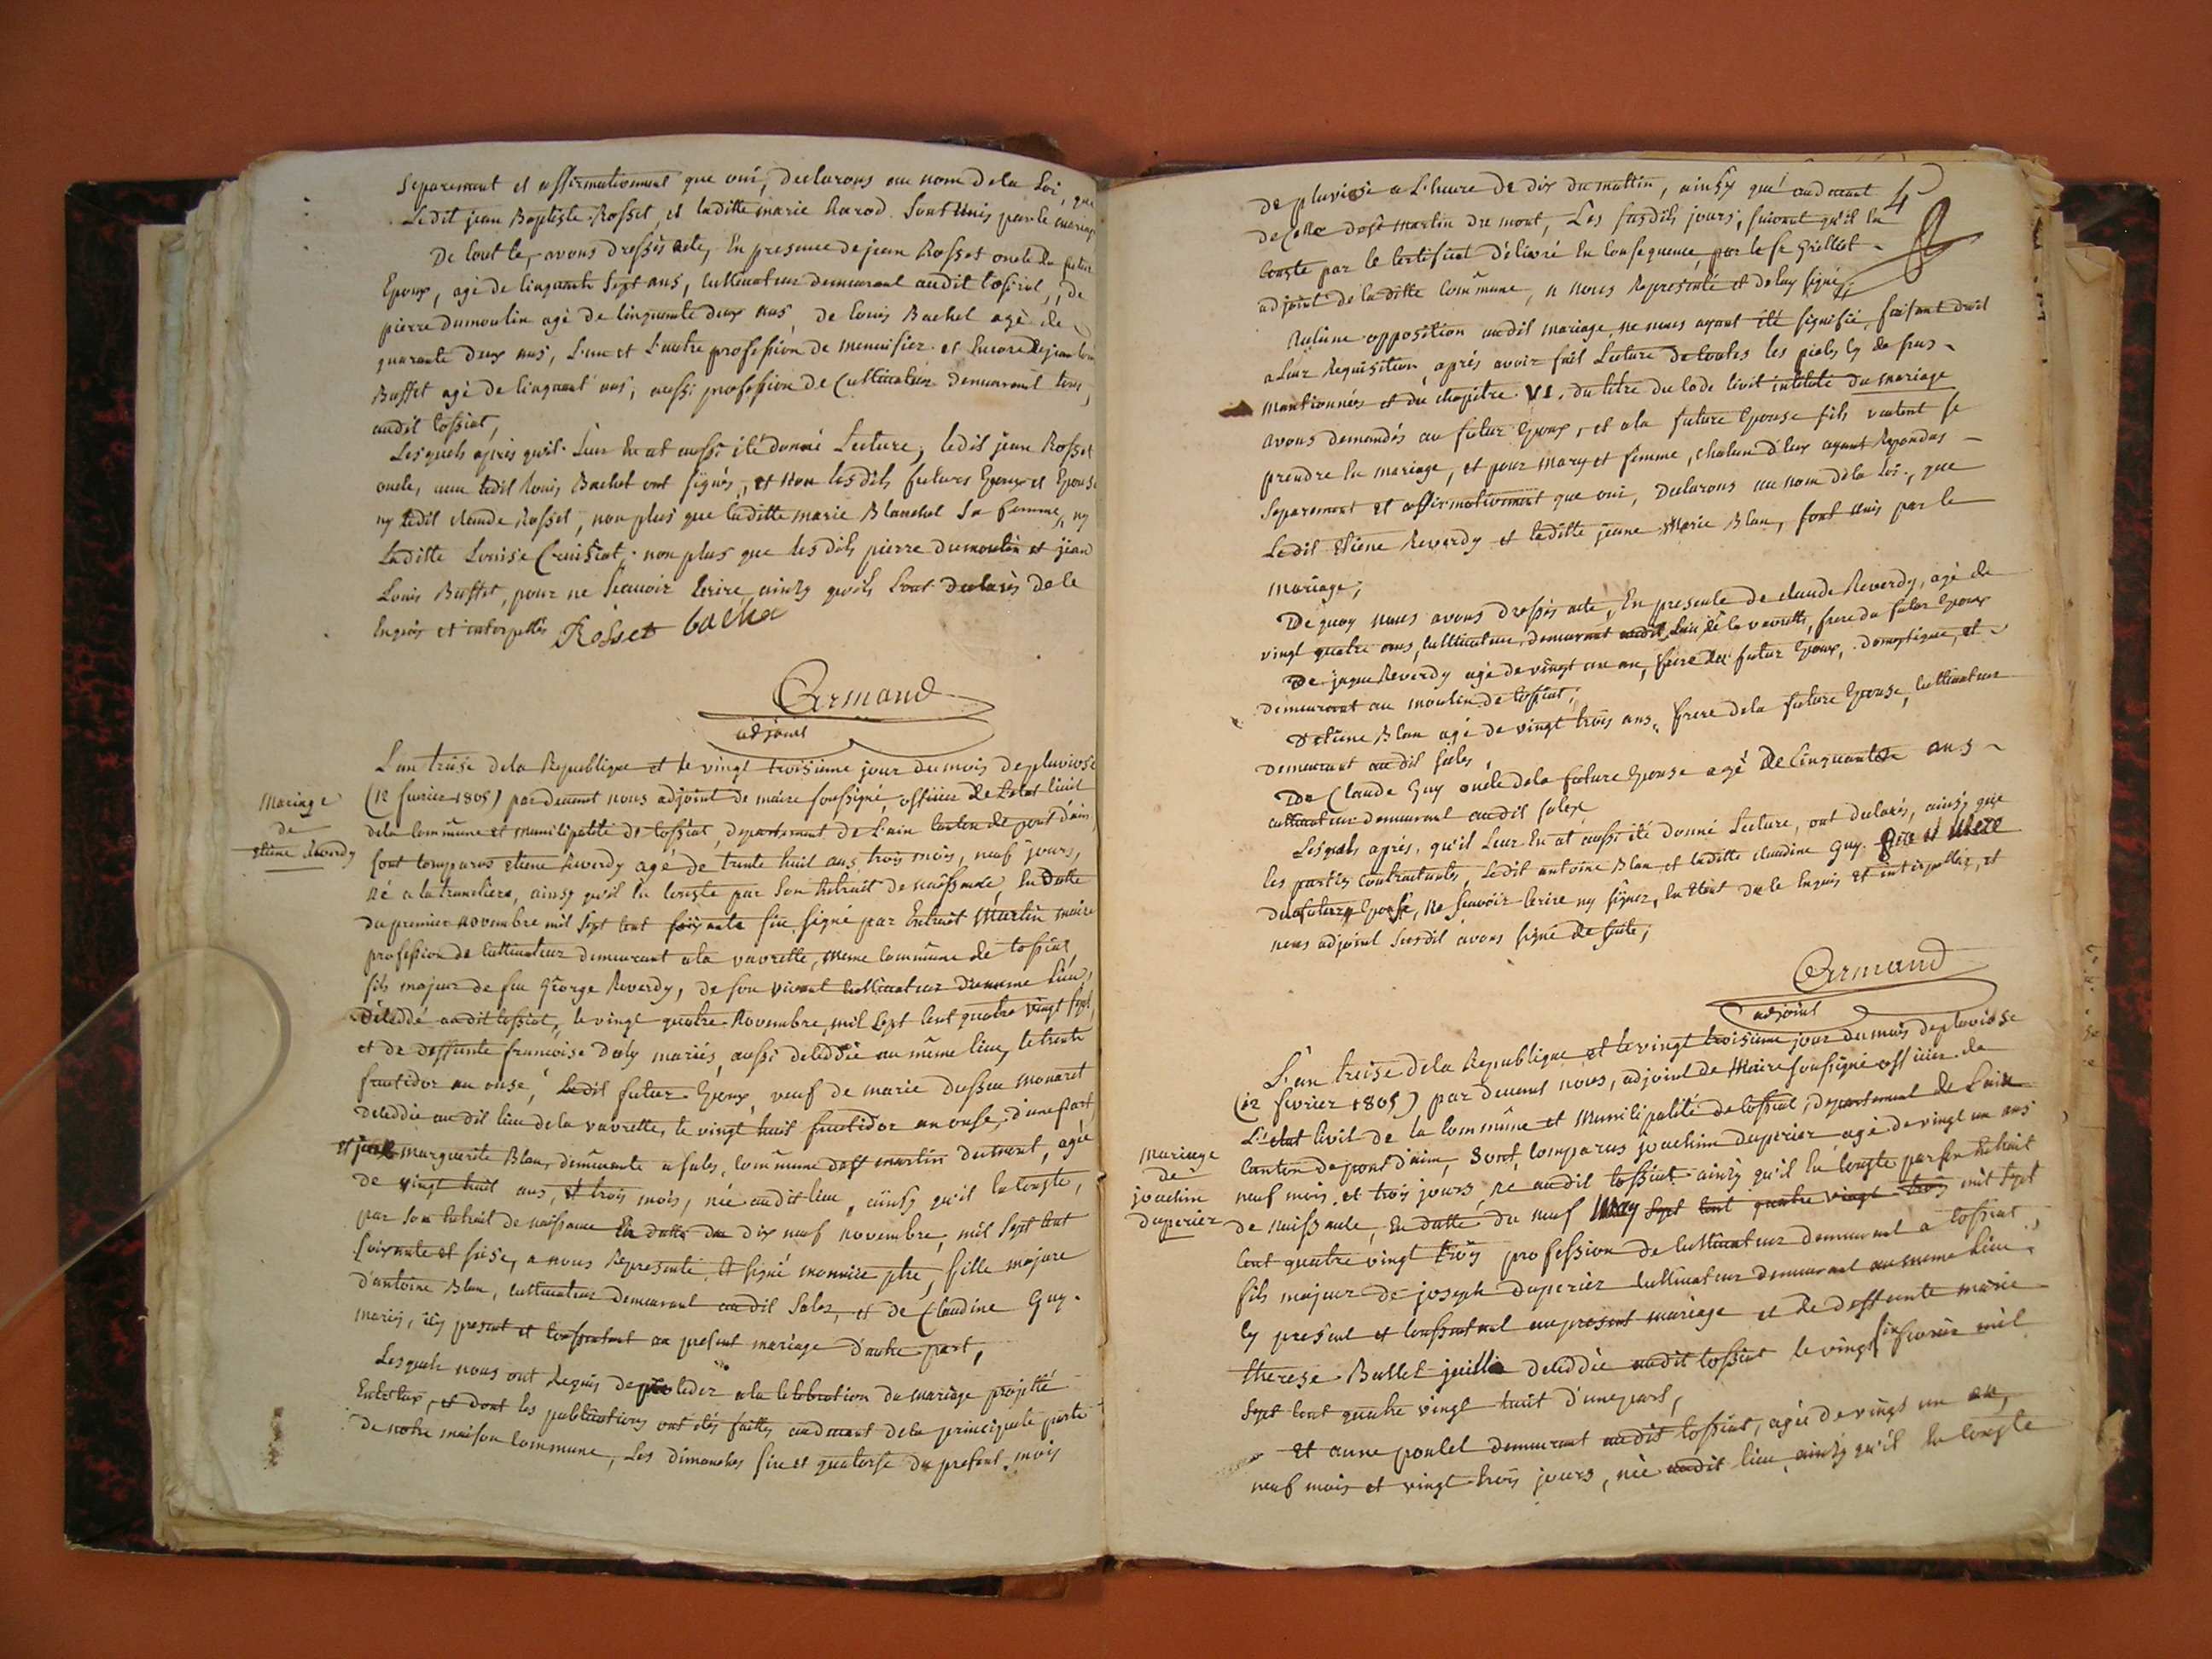 Separement et affirmativement que oui, declarons au nom de la Loi, que
Ledit jean Baptiste Rosset et laditte marie harod Sont Unis par le mariage
De tout ce, avons dressés acte, En presence de jean Rosset oncle du futur
Epoux, agé de Cinquante Sept ans, Cultivateur demeurant audit tossiat, de
pierre dumoulin agé de Cinquante deux ans de Louis Bachel agé de
quarante deux ans, L'un et L'autre profession de menuisier et Encore de jean Louis
Buffet agé de Cinquant ans, aussi profession de Cultivateur demeurant tous,
audit tossiat,
Lesquels après qu'il Leur En at aussi été donné Lecture, ledit jean Rosset
oncle, avec ledit Louis Bachet ont signés, et Non lesdits futurs Epoux et Epouse
ny ledit claude Rosset, non plus que laditte marie Blanchet Sa femme, ny
Laditte Louise Cruisiat, non plus que lesdits pierre dumoulin et jean
Louis Buffet, pour ne Scavoir Ecrire ainsy qu'ils L'ont declarés de le
Enquis et interpellés Rosset bachel
Armand
adjoint
L'an treise de la Republique et le vingt troisieme jour du mois de pluviose
Mariage
de
etiene Reverdy
(12 fevrier 1805) pardevant nous adjoint de maire soussigné, officier de L'etat Civil
de la Commune et municipalité de tossiat, departement de L'ain Canton de pont d'ain
Sont Comparus etiene Reverdy agé de trente huit ans, trois mois, neuf jours,
Né a la trancliere, ainsy qu'il En Conste par Son Extrait de naissance, En datte
du premier Novembre mil Sept Cent soixante six signé par Extrait Martin maire
profession de Cultivateur demeurant a la vavrette, meme Commune de tossiat
fils majeur de feu George Reverdy, de son vivant Cultivateur du meme Lieu,
déceddé audit tossiat, le vingt quatre Novembre mil Sept Cent quatre vingt Sept,
et de deffunte francoise Daly mariés, aussi deceddée au même lieu, le trente
fructidor an onse, Ledit futur Epoux, veuf de marie Dussu monaret
deceddée audit lieu de la vavrette, le vingt huit fructidor an onse, d'une part
et jeane marguerite Blan, demeurante a sales, Commune de St martin du mont, agée
de vingt huit ans, et trois mois, née audit lieu, ainsy qu'il En Conste,
par Son Extrait de naissance En datte du dix neuf novembre, mil Sept Cent
Soixante et seise, a nous Representé, et signé monnier ptre, fille majeure
d'antoine Blan, Cultivateur demeurant audit Sales, et de Claudine Guy
mariés, icy present et Consentent au present mariage d'autre part,
Lesquels nous ont Requis de proceder a la Celebration du mariage projetté
Entr'Eux, et dont les publications ont étés faittes audevant de la principale porte
de notre maison Commune, Les dimanches six et quatorse du present mois
4
de pluviose a L'heure de dix du mattin, ainsy qu'audevant
de Celle de St martin du mont, Les susdits jours, suivant qu'il En
Conste par le Certificat délivré En Consequence, par le Sr Grillet
adjoint de la ditte Commune, a nous Representé et de luy signé,
Aucune opposition audit mariage ne nous ayant été signifié, faisant droit
a Leur Requisition, aprés avoir fait Lecture de toutes les pieces Cy de sus
mantionnées et du chapitre VI. du titre du Code Civil intitulé du mariage
avons demandés au futur Epoux, et a la future Epouse sils veulent se
prendre En mariage, et pour mary et femme, chacun d'Eux ayant Repondus
Separement et affirmativement que oui, Declarons au nom de la Loi, que
Ledit Etiene Reverdy et laditte jeane Marie Blan, sont unis par le
mariage,
De quoy nous avons dressés acte, En presence de claude Reverdy, agé de
vingt quatre ans, Cultivateur demeurant audit lieu de la vavrette, frere du futur Epoux
De jaque Reverdy agé de vingt un an, frere du futur Epoux, domestique, et
demeurant au moulin de tossiat,
D'etiene Blan agé de vingt trois ans, frere de la future Epouse, Cultivateur
demeurant audit sales,
De Claude Guy oncle de la future Epouse agé de Cinquante ans
Cultivateur demeurant audit sales
Lesquels aprés, qu'il Leur En at aussi été donné Lecture, ont declarés, ainsy que
les parties Contractantes, Ledit antoine Blan et laditte claudine Guy Pere et Mere
de future Epouse, Ne Scavoir Ecrire ny signer, En Etant de le Enquis et interpellés, et
nous adjoint Susdit avons signé de suite,
Armand
adjoint
L'an treise de la Republique et le vingt troisieme jour du mois de pluviose
(12 fevrier 1805) par devant nous, adjoint de Maire soussigné officier de
L'etat Civil de la Commune et Municipalité de tossiat, departement de L'ain
Mariage
de
joachim
duperier
Canton de pont d'ain, Sont, Comparus joachim duperier agé de vingt un ans
neuf mois et trois jours né audit tossiat ainsy qu'il En Conste par son Extrait
de naissance, En datte du neuf May Sept Cent quatre vingt trois mil Sept
Cent quatre vingt trois profession de Cultivateur demeurant a tossiat,
fils majeur de joseph duperier Cultivateur demeurant au meme Lieu,
Cy present et Consentent au present mariage et de deffunte marie
therese Ballet deceddée audit tossiat le vingt six fevrier mil
Sept Cent quatre vingt huit d'une part,
Et anne poulet demeurant audit tossiat, agée de vingt un an,
neuf mois et vingt trois jours, née audit lieu, ainsy qu'il En Conste